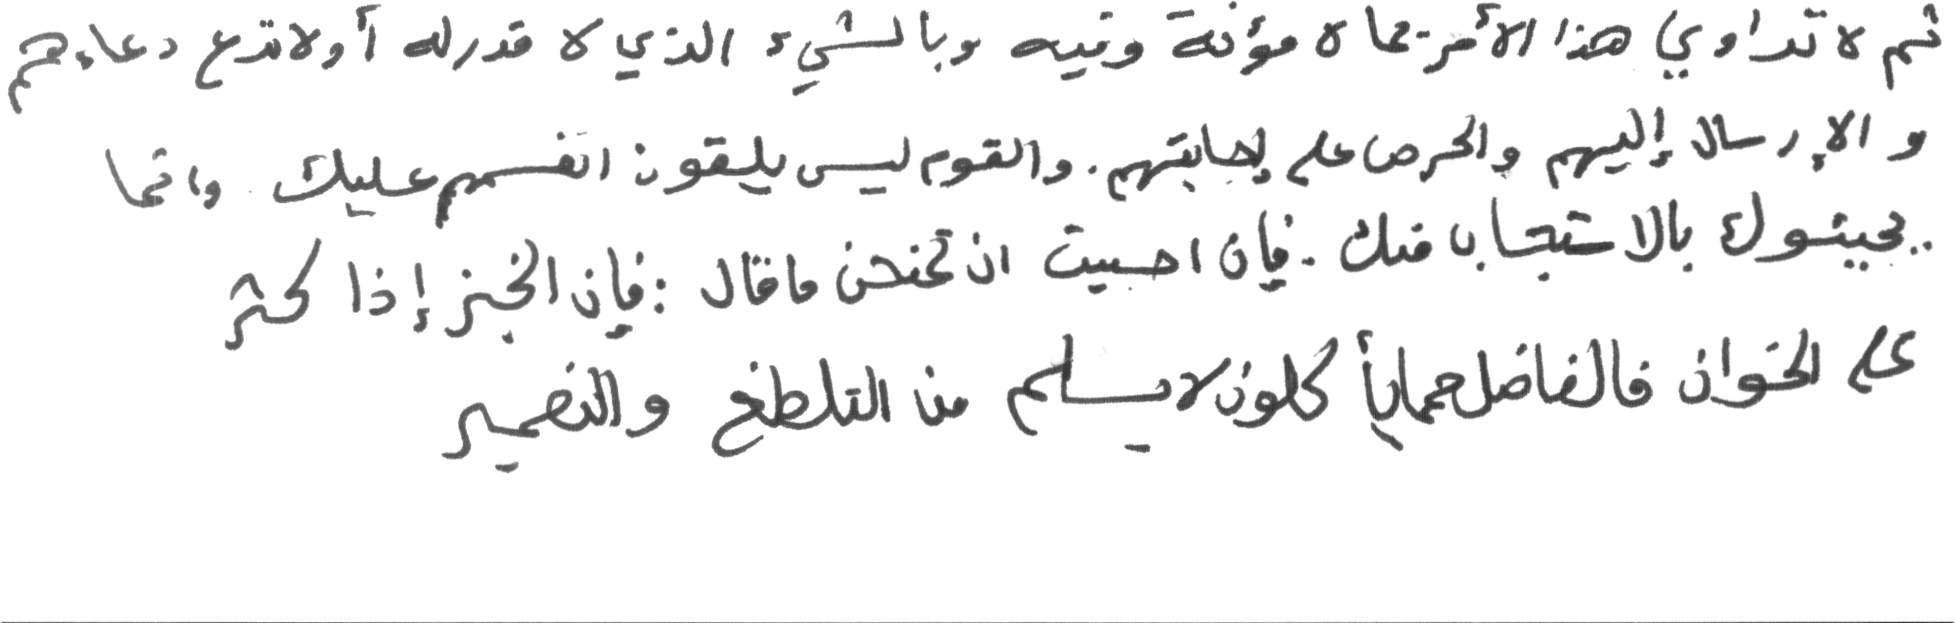 ثم لا تداوي هذا الأمر بما لا مؤنة وفيه وبالشيء الذي لا قدر له أو لا تدع دعاءهم
و الإرسال إليهم والحرص على إجابتهم. والقوم ليس يلقون انفسهم عليك وانما
يجيئوك بالاستجاب منك. فإن احببت ان تمتحن ما قال: فإن الخبز إذا كثر
على الخوان فالفاضل مما يأكلون لا يسلم من التلطخ والتغمير